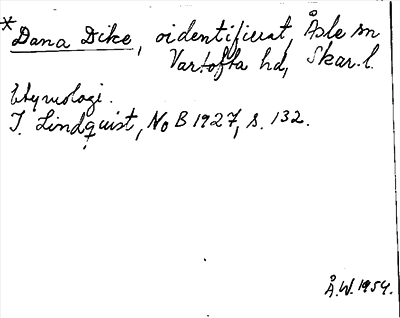 *Dana Dike, oidentifierat, Åsle sn
Vartofta hd, Skar.l.
Etymologi.
I. Lindquist, NoB 1927, s. 132.
Å.W. 1954.